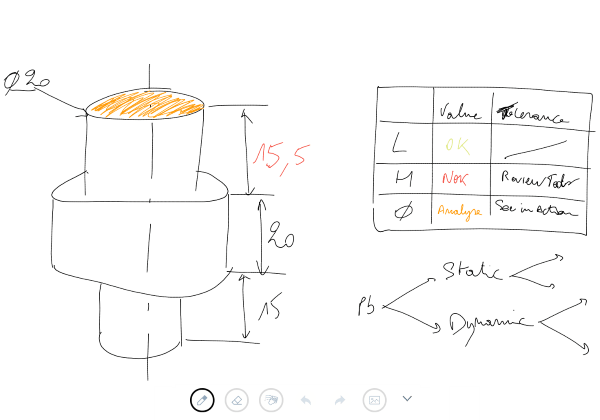 Ø20
15,5
20
15
Value Tolerance
L OK
H NOK Review Tools
Ø Analyse See in Action
Static
Pb
Dynamic